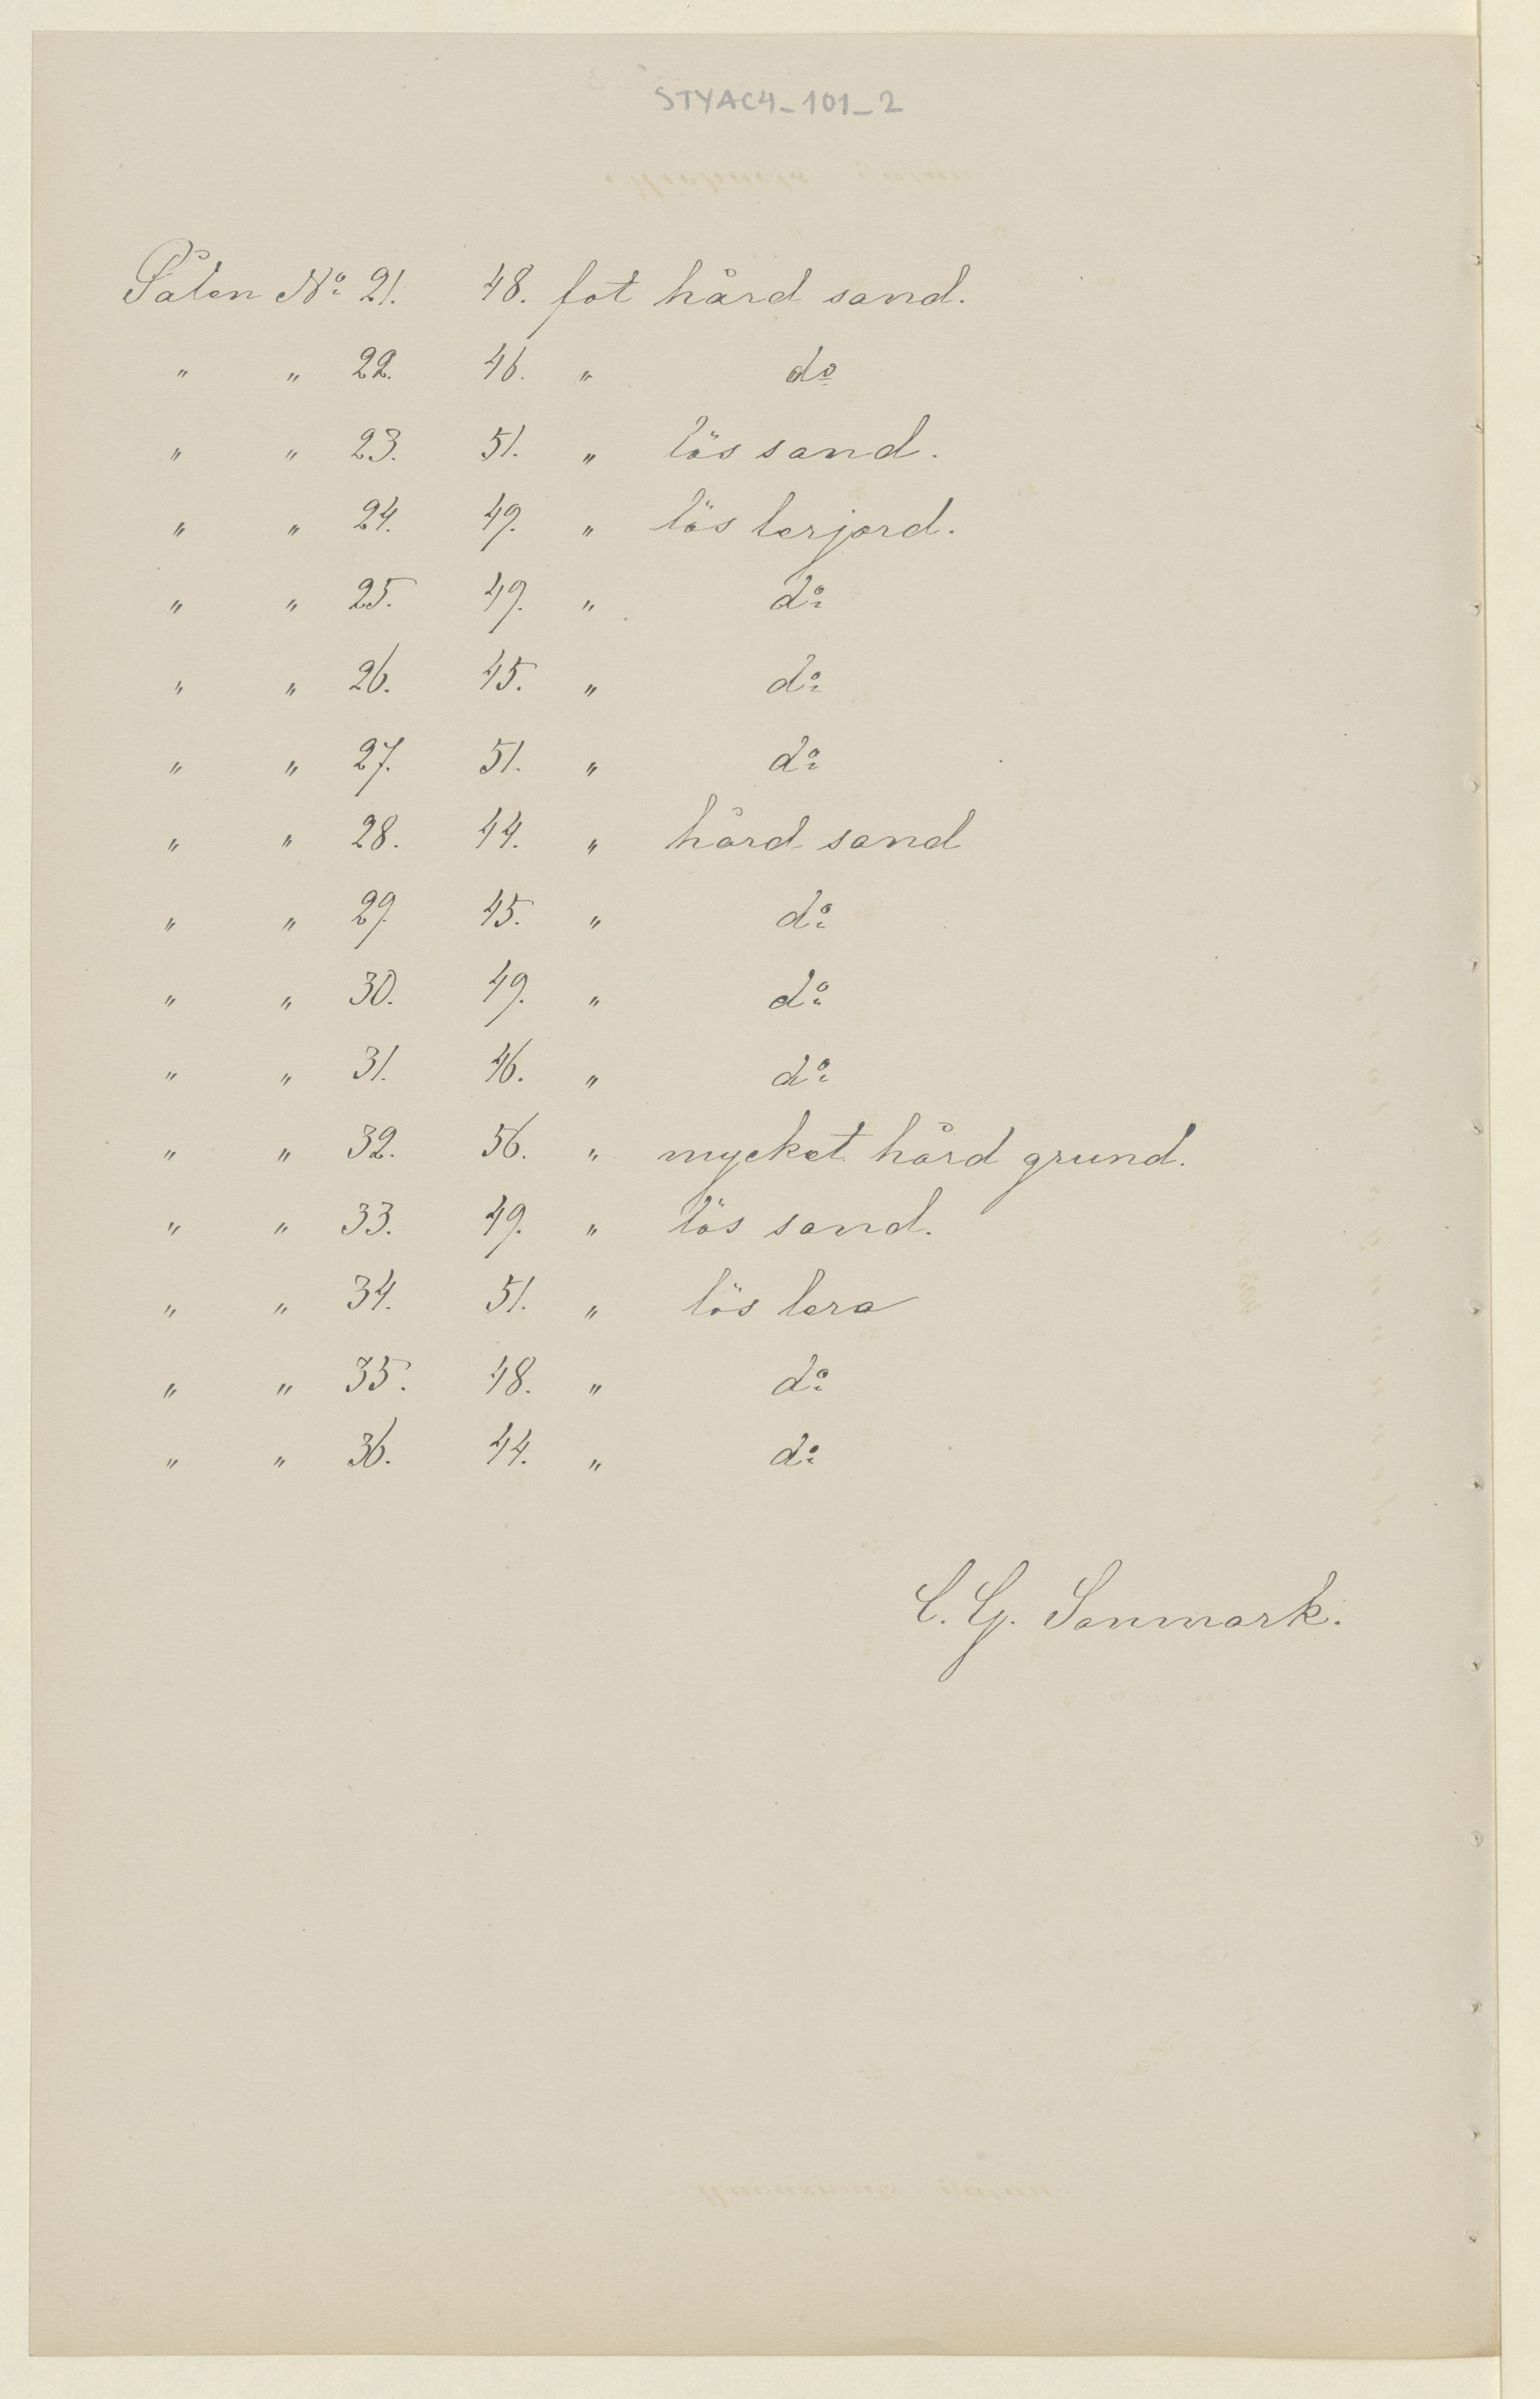 STYAC4_101_2
Pålen No 21. 48. fot hård sand.
" " 22. 46. " do
" " 23. 51. " lös sand.
" " 24. 49. " lös lerjord.
" " 25. 49. " do
" " 26. 45. " do
" " 27. 51. " do
" " 28. 44. " hård sand
" " 29 45. " do
" " 30. 49. " do
" " 31. 46. " do
" " 32. 56. " mycket hård grund.
" " 33. 49. " lös sand.
" " 34. 51. " lös lera
" " 35. 48. " do
" " 36. 44. " do
C. G. Sanmark.